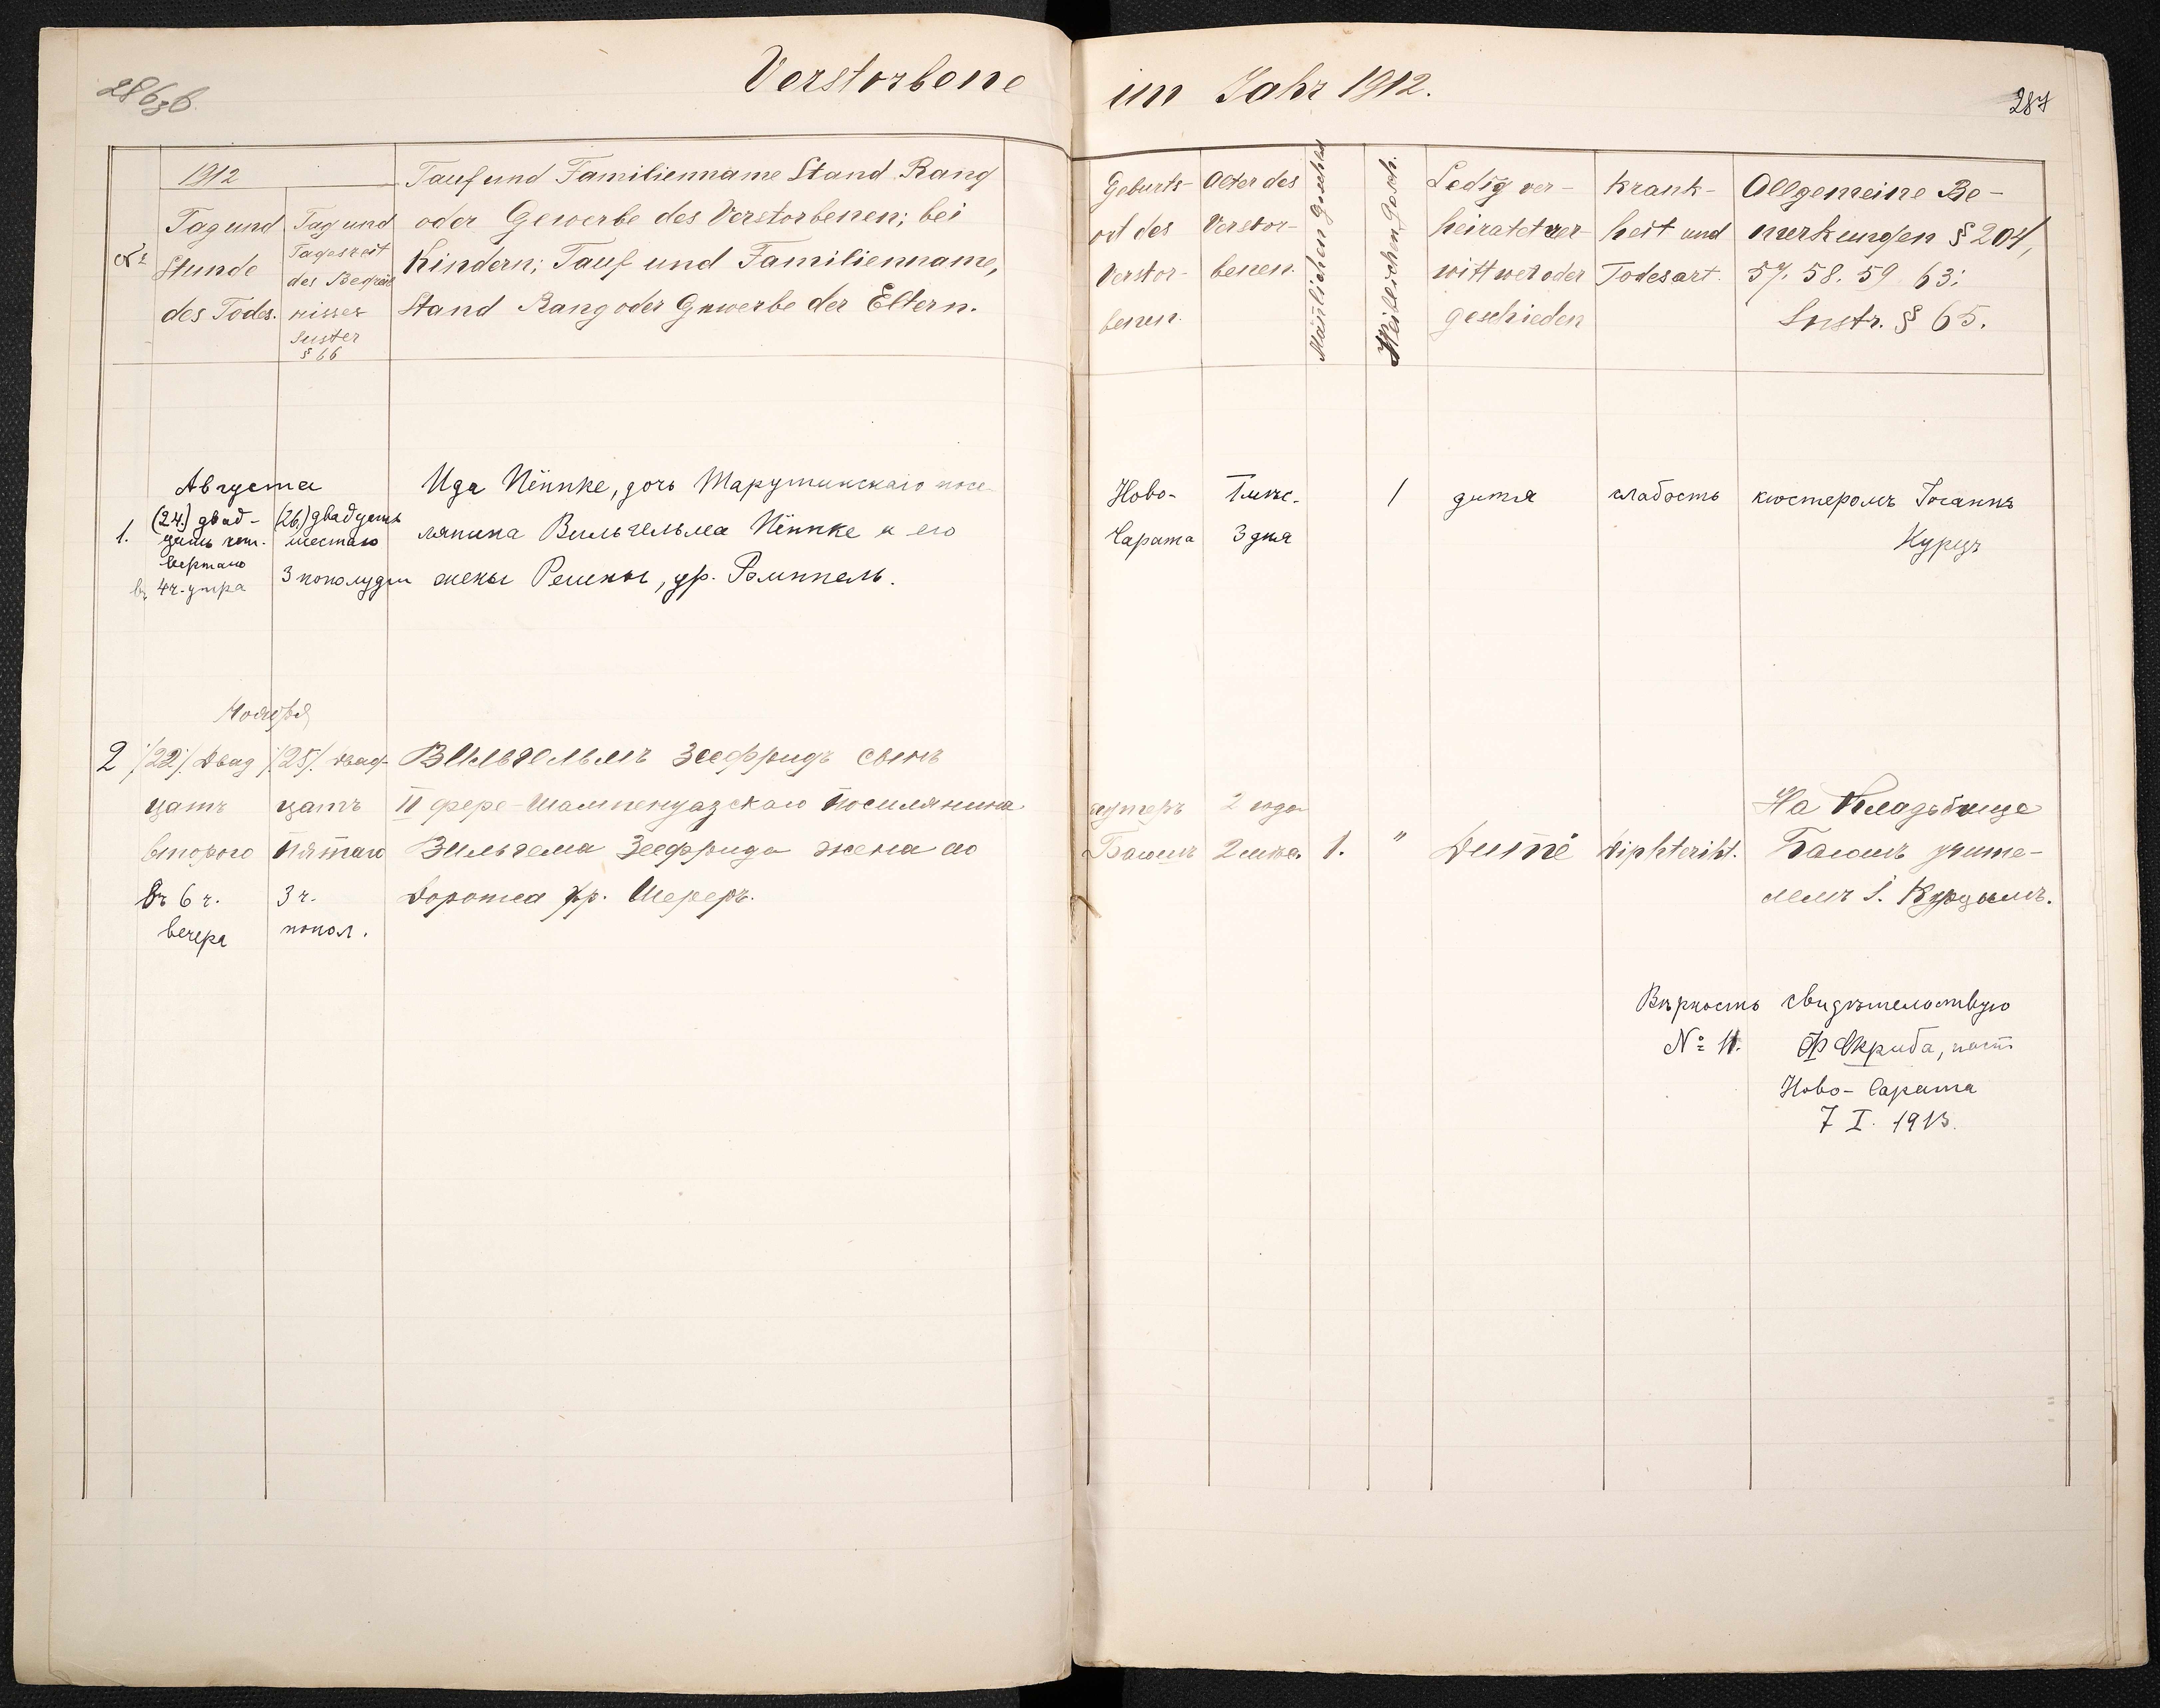 286 зб.
Verstorbene im Jahr 1912.
287
№
1912
Tag und
Stunde
des Todes.
Tag und
Tageszeit
des Begräb
nisses
Suster
§ 66
Tauf und Familienname Stand Rang
oder Gewerbe des Verstorbenen; bei
Kindern; Tauf und Familienname,
Stand Rang oder Gewerbe der Eltern.
Geburts-
ort des
Verstor-
benen.
Alter des
Verstor-
benen.
Mänlichen Geschlch
Weiblichen Gesch.
Ledig ver-
heiratet ver
wittwet oder
geschieden
Krank-
heit und
Todesart.
Allgemeine Be-
merkungen § 204,
57. 58. 59 63;
Instr. § 65.
Августа
1.
(24.) двад-
цать чет.
вертаго
въ 4 ч. утра
(26) двадцать
шестаго
3 пополудни
Ида Пённке, дочь Тарутинскаго посе
лянина Вильгельма Пённке и его
жены Регины, ур. Рэмпель.
Ново-
Сарата
1 мѣс.
3 дня
1
дитя
слабость
кюстеромъ Іоганнъ
Курцъ
Ноября
2
/22/. Двад
цать
второго
въ 6 ч.
вечера
/25/. двад-
цать
пятаго
3 ч.
попол.
Вильгельмъ Зеефридъ сынъ
II фере-Шампенуазскаго поселянина
Вильгема Зеефрида жена его
Доротеа ур. Шереръ.
хуторъ
Баюшъ
2 года
2 мѣс.
1.
"
Дитя
Diphteriht.
На Кладьбище
Баюшъ учите-
лемъ І. Курцымъ.
Вѣрность свидѣтельствую
№ 11. Ф Скриба, паст
Ново-Сарата
7 I. 1913.